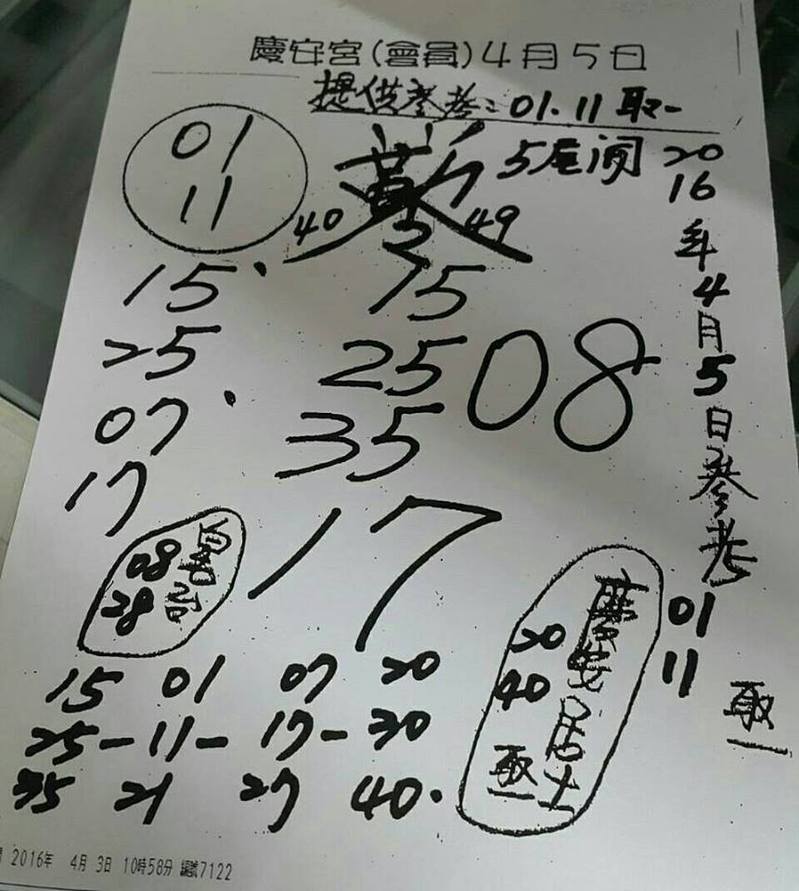 慶安宮(會員)4月5日
提供參考:01.11取一
01
11
40 2 49
5尾開
2016年4月5日參考
01
11
取一
15 15
25 25
07 35
17
08
17
08
28
慶安居士
20
40
取一
15 01 07 20
25-11-17-30
35 21 27 40.
2016年 4月 3日 10時58分 編號7122